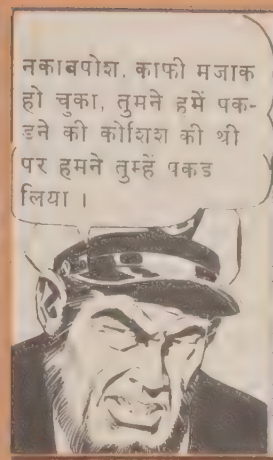 नकाबपोश. काफी मजाक
हो चुका, तुमने हमें पक-
डने की कोशिश की थी
पर हमने तुम्हें पकड
लिया ।